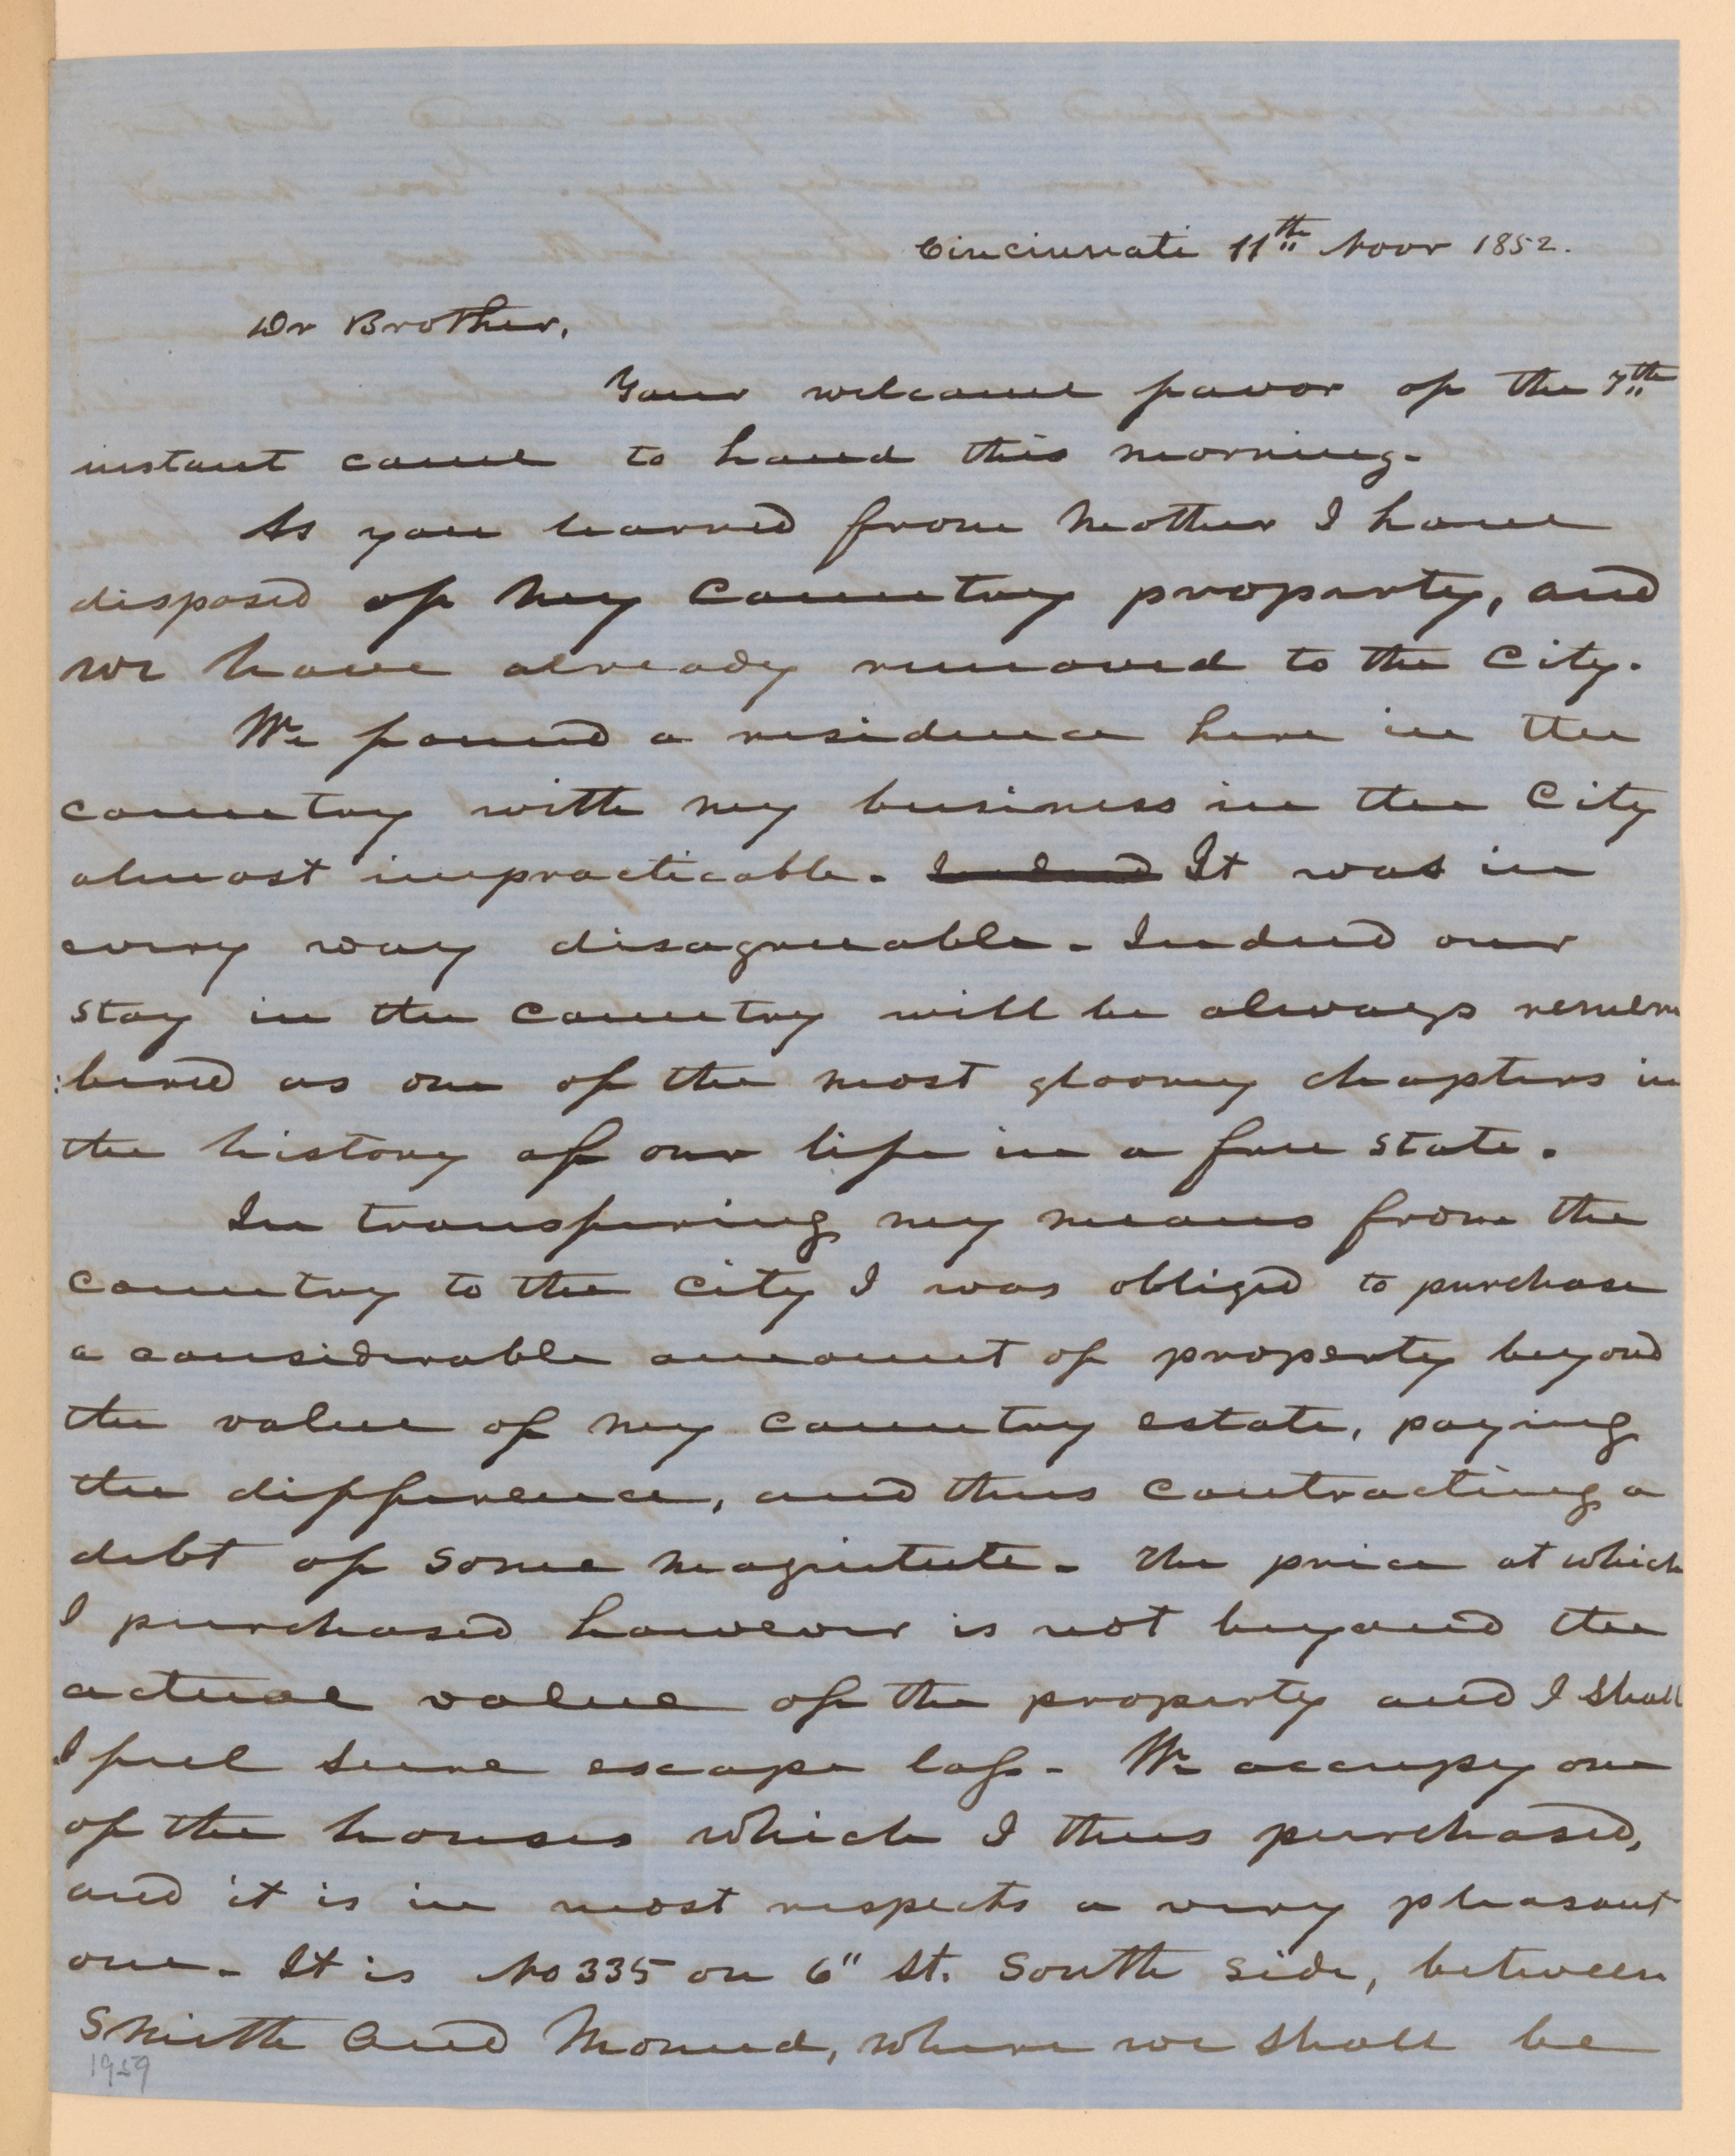 Cincinnati 11th Novr 1852.
Dr Brother,
Your welcome favor of the 7th
instant came to hand this morning.
As you learned from Mother I have
disposed of my Country property, and
we have already removed to the City.
We found a residence here in the
country with my business in the City
almost impracticable. Indeed It was in
every way disagreeable. Indeed our
stay in the Country will be always remem
:bered as one of the most gloomy chapters in
the history of our life in a free State.
In transfering my means from the
Country to the City I was obliged to purchase
a considerable amount of property beyond
the value of my Country estate, paying
the difference, and thus Contracting a
debt of some magnitute. The price at which
I purchased however is not beyond the
actual value of the property and I shall
I feel sure escape loss. We occupy one
of the houses which I thus purchased,
and it is in most respects a very pleasant
one. It is No 335 on 6" St. South side, between
Smith and Mound, where we shall be
1959